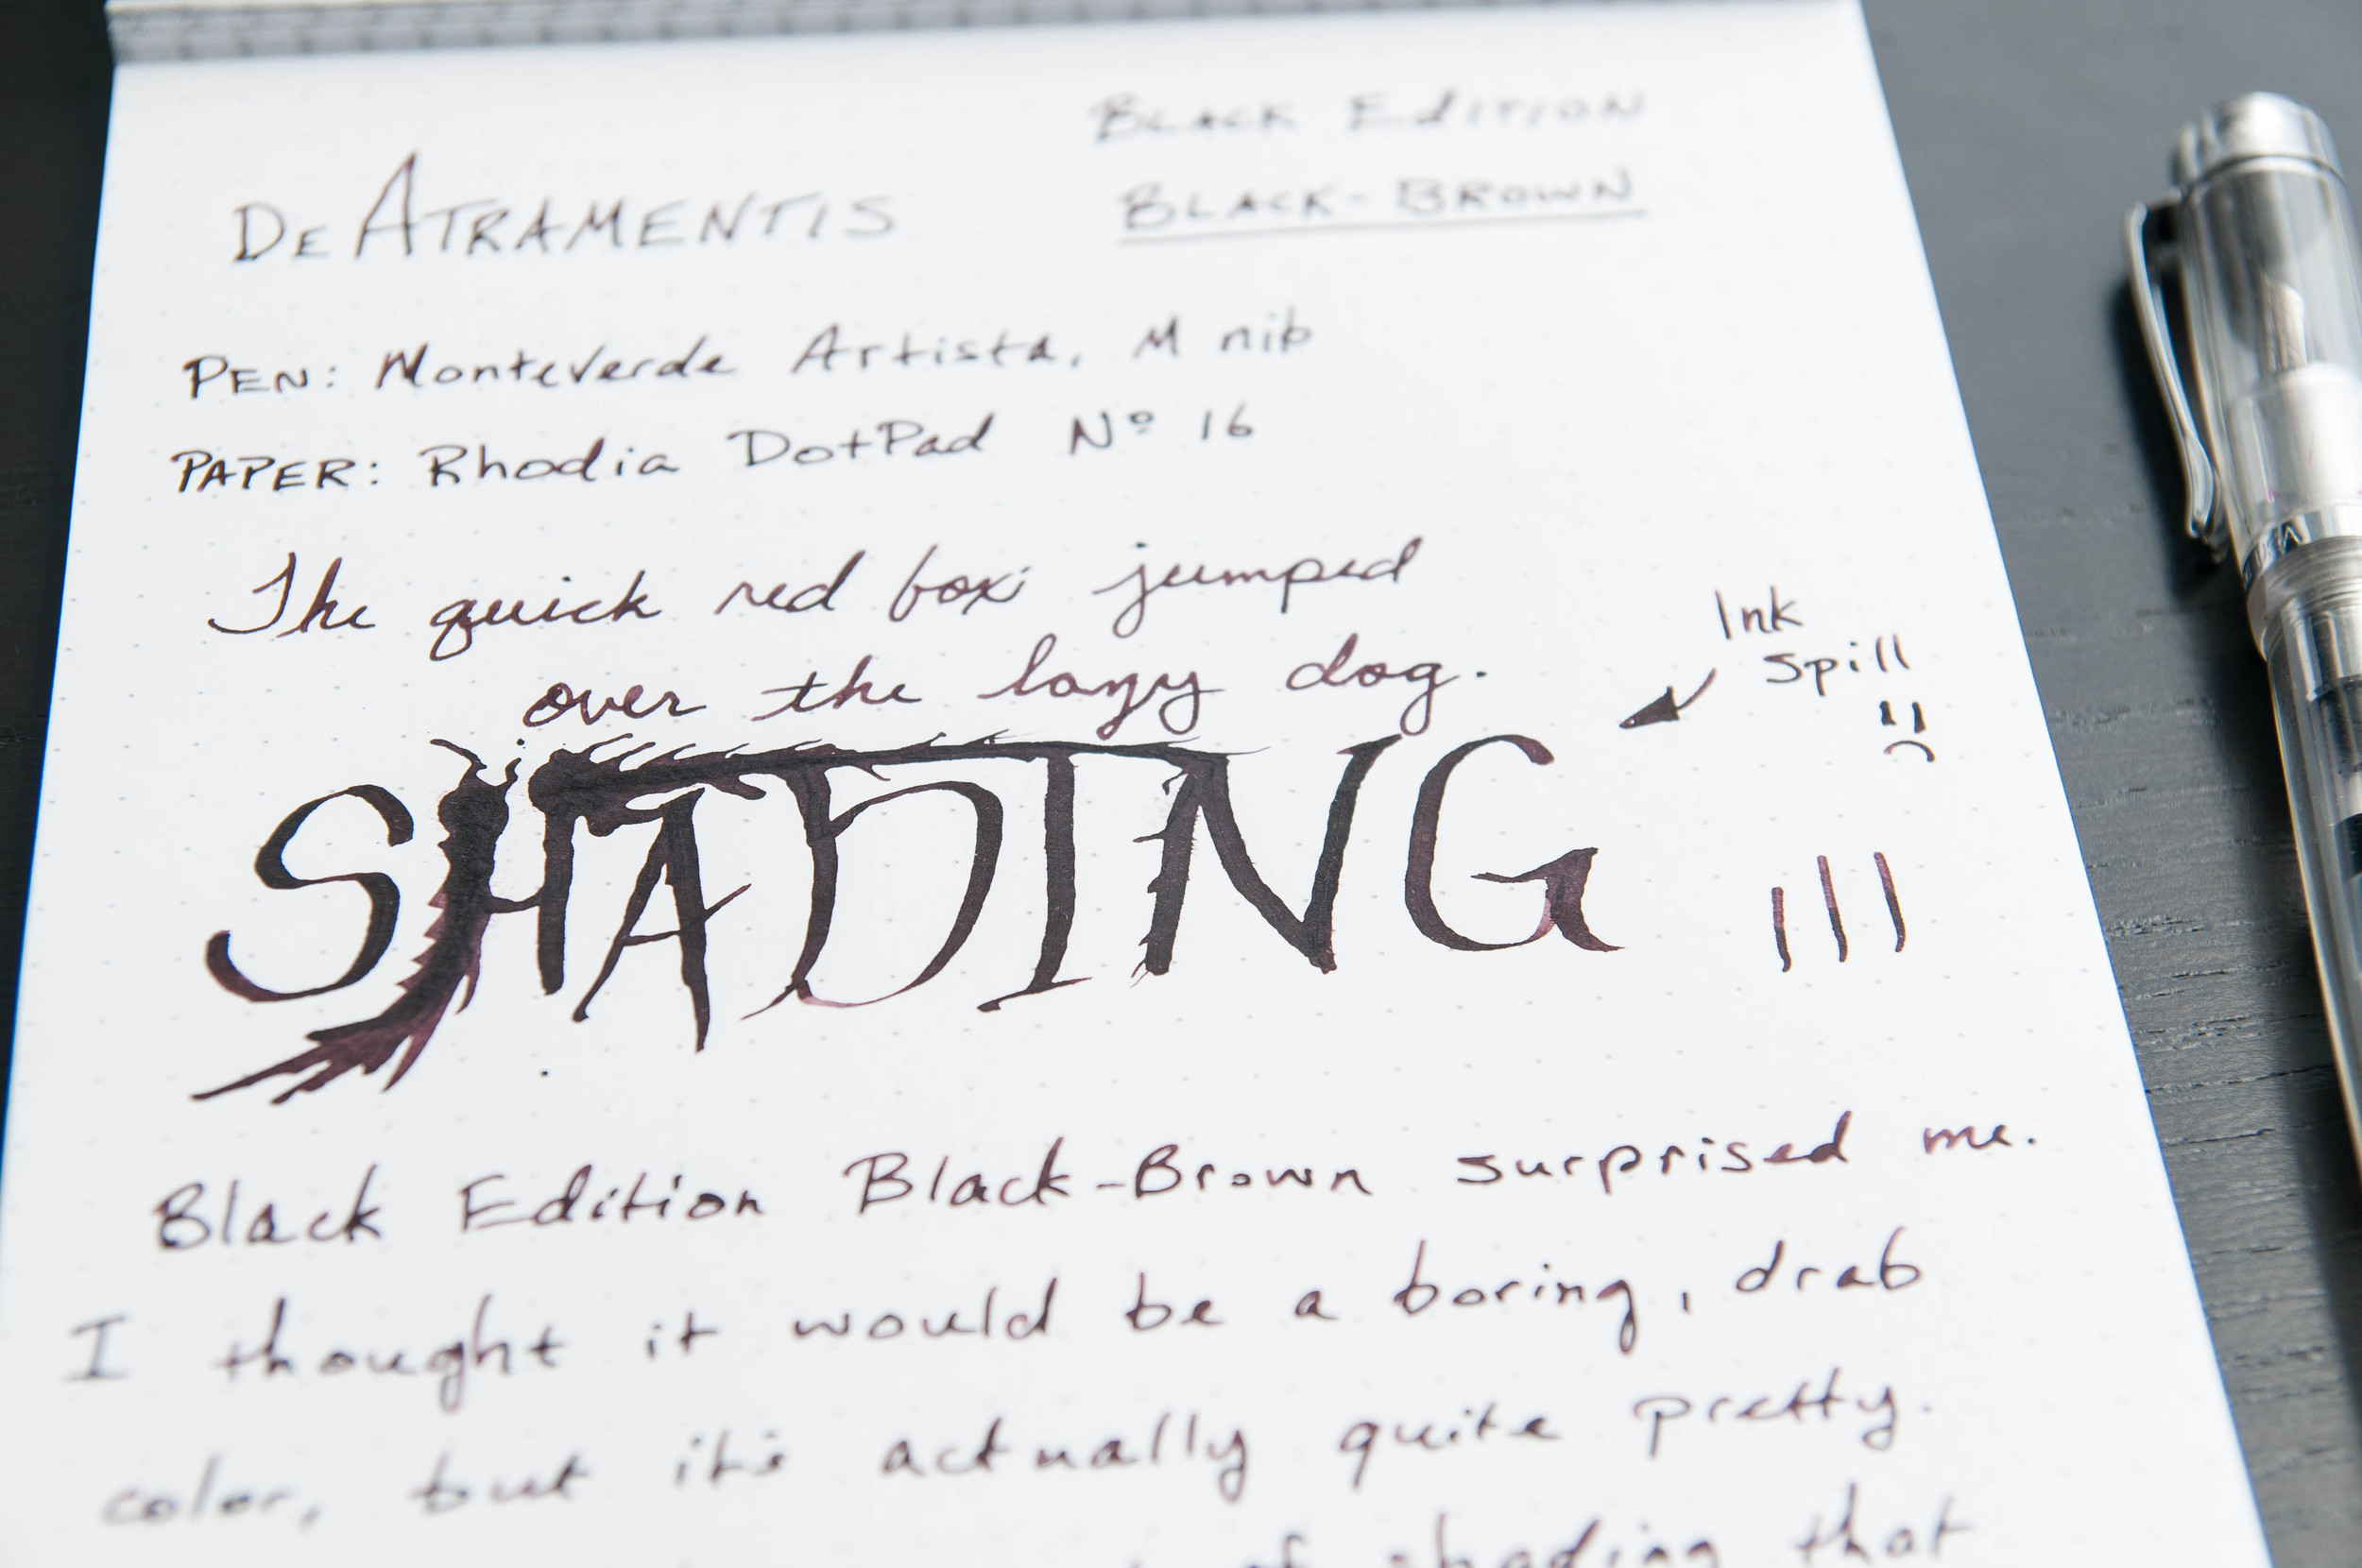 BLACK EDITION
DE ATRAMENTIS
BLACK-BROWN
PEN: Monteverde Artista, M nib
PAPER: Rhodia DotPad Nº 16
The quick red fox jumped
over the lazy dog.
Ink
Spill
SHADING
Black Edition Black-Brown surprised me.
I thought it would be a boring, drab
color, but it's actually quite pretty.
of shading that